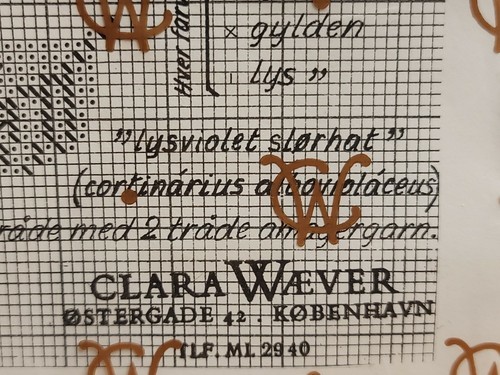 Hver far
× gylden
ı lys „
„lysviolet slørhat”
(cortinárius albovioláceus)
råde med 2 tråde amagergarn.
CLARA WÆVER
ØSTERGADE 42 . KØBENHAVN
TLF. MI. 2940
CW